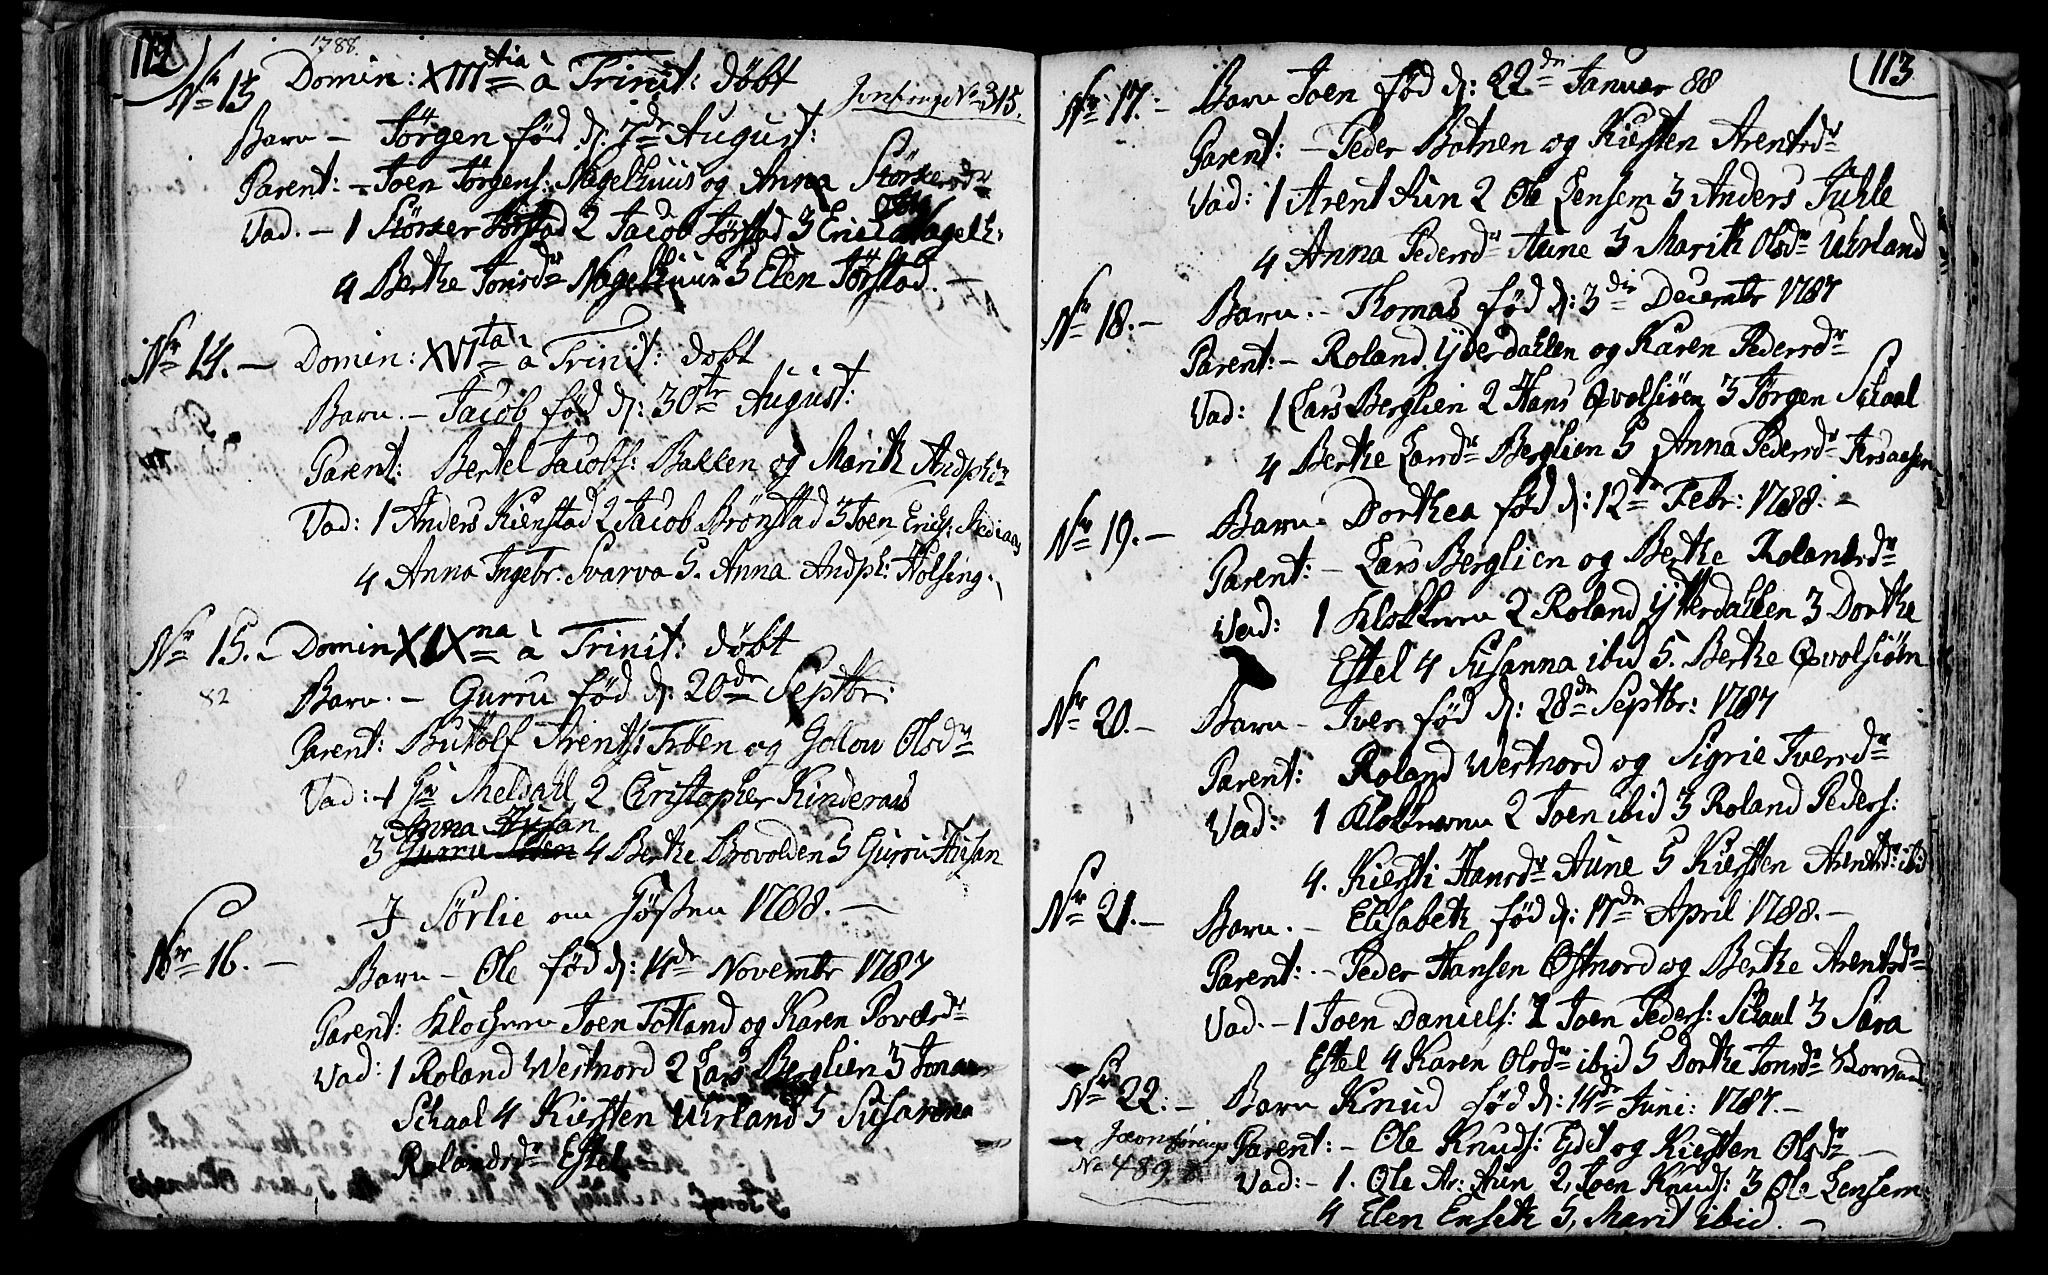 112
1788.
Nr 13 Domin: XIIItia à Trinit: döbt
No 315.
Barn – Jörgen fød d: 7de August:
Parent: – Joen Jörgens: Nagelhuus og Anna Störkersdr
Vad. – 1 Störker Förstad 2 Jacob Förstad 3 Erich Nagelh:
4 Berthe Jonsdr Nagelhuus 5 Elen Förstad. –
Nr 14. – Domin: XVIta à Trinit: döbt
Barn. – Jacob fød d: 30te August:
Parent: Bertel Jacobs: Bakken og Marith Andphdr
Vad: 1 Anders Kienstad 2 Jacob Brönstad 3 Joen Erichs: Mediaas
4 Anna Ingebr: Svarva 5. Anna Andph: Holsing.
Nr 15. – Domin XIXna à Trinit: döbt
82
Barn. – Gurru fød d: 20de Septbr:
Parent: Butolf Arents: Tröen og Golow Olsdr
Vad: – 1 Hr Meldahl 2 Christopher Kinderaas
Anna Husan
3 Gurru 4 Berthe Brovolden 5 Gurru Husan
I Sörlie om Hösten 1788. –
Nr 16. –
Barn – Ole fød d: 14de Novembr 1787
Parent: Klocheren Joen Totland og Karen Povelsdr
Vad: 1 Roland Westnord 2 Lars Berglien 3 Jonas
Schaal 4 Kiersten Uhrland 5 Susanna
Rolandsdr Estel
113
Nr 17. – Barn Joen fød d: 22de Januar 88
Parent: – Peder Botnen og Kiersten Arentsdr
Vad: 1 Arent Aun 2 Ole Lensem 3 Anders Tuhle
4 Anna Pedersdr Aune 5 Marith Olsdr Uhrland
Nr 18. – Barn. – Thomas fød d: 3die Decembr 1787
Parent: – Roland Yterdahlen og Karen Pedersdr
Vad: 1 Lars Berglien 2 Hans Qvolsiöen 3 Jörgen Schaal
4 Berthe Larsdr Berglien 5 Anna Pedersdr
Nr 19. – Barn – Dorthea fød d: 12te Febr: 1788. –
Parent: – Lars Berglien og Berthe Rolandsdr
Vad: 1 Klokkeren 2 Roland Ytterdahlen 3 Dorthe
Estel 4 Susanna ibid 5. Berthe Qvolsiöen
Nr 20. – Barn – Iver fød d: 28de Septbr: 1787
Parent: Roland Westnord og Sigrie Iversdr
Vad: 1 Klokkeren 2 Joen ibid 3 Roland Peders:
4. Kiersti Hansdr Aune 5 Kiersten Arentsdr ibid
Nr 21. – Barn. – Elisabeth fød d: 17de April 1788. –
Parent: – Peder Hansen Östnord og Berthe Arentsdr
Vad. – 1 Joen Daniels: 2 Joen Peders: Schaal 3 Sara
Estel 4 Karen Olsdr ibid 5 Dorthe Jonsdr
Nr 22. – Barn Knud fød d: 14de Juni: 1787. –
No 489.
Parent: – Ole Knuds: Eydet og Kiersten Olsdr –
Vad: – 1. Ole Ar: Aun 2, Joen Knuds: 3 Ole Lensem:
4 Elen 5, Marit ibid. –